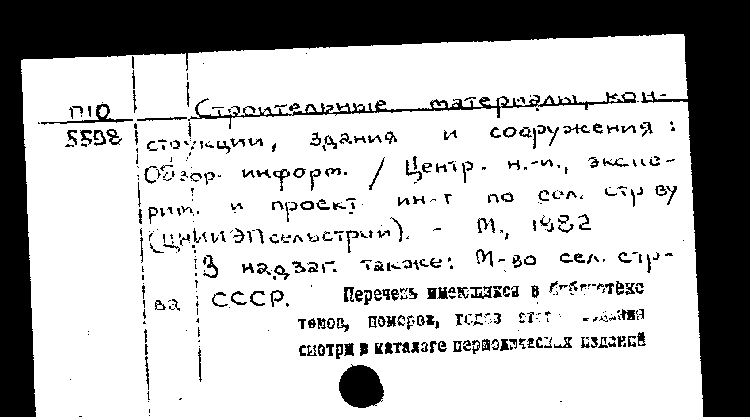 П10 Строительные материалы, кон-
5598 струкции, здания и сооружения:
Обзор. информ. / Центр. н.-и., экспе-
рим. и проект. ин-т по сел. стр-ву
(ЦНИИЭПсельстрой). - М., 1982
В надзаг. также: М-во сел. стр-
ва СССР. Перечень имеющихся в библиотеке
томов, номеров, годов этого издания
смотри в каталоге периодических изданий